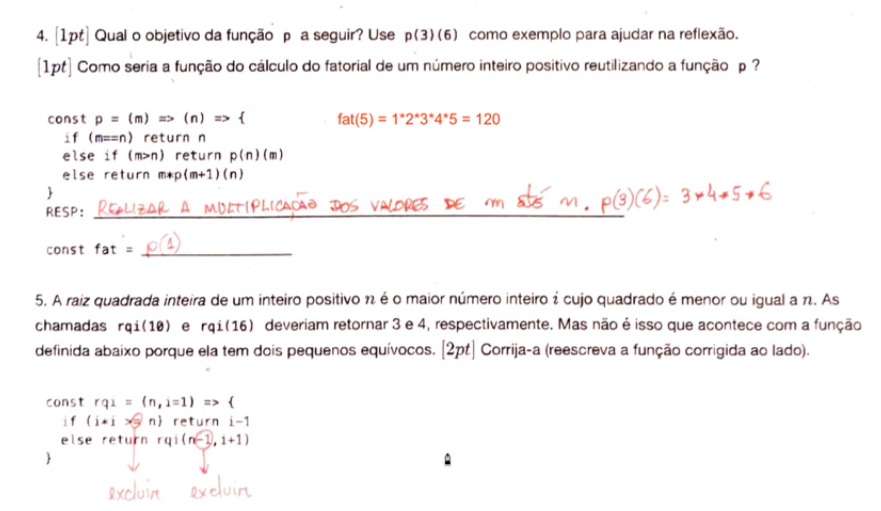 4. [1pt] Qual o objetivo da função p a seguir? Use p(3)(6) como exemplo para ajudar na reflexão.
[1pt] Como seria a função do cálculo do fatorial de um número inteiro positivo reutilizando a função p ?
const p = (m) => (n) => {
fat(5) = 1*2*3*4*5 = 120
if (m==n) return n
else if (m>n) return p(n)(m)
else return m*p(m+1)(n)
}
RESP: REALIZAR A MULTIPLICAÇÃO DOS VALORES DE m até n. p(3)(6) = 3*4*5*6
const fat = p(1)
5. A raiz quadrada inteira de um inteiro positivo n é o maior número inteiro i cujo quadrado é menor ou igual a n. As
chamadas rqi(10) e rqi(16) deveriam retornar 3 e 4, respectivamente. Mas não é isso que acontece com a função
definida abaixo porque ela tem dois pequenos equívocos. [2pt] Corrija-a (reescreva a função corrigida ao lado).
const rqi = (n,i=1) => {
if (i*i >= n) return i-1
else return rqi(n-1,i+1)
}
excluir excluir